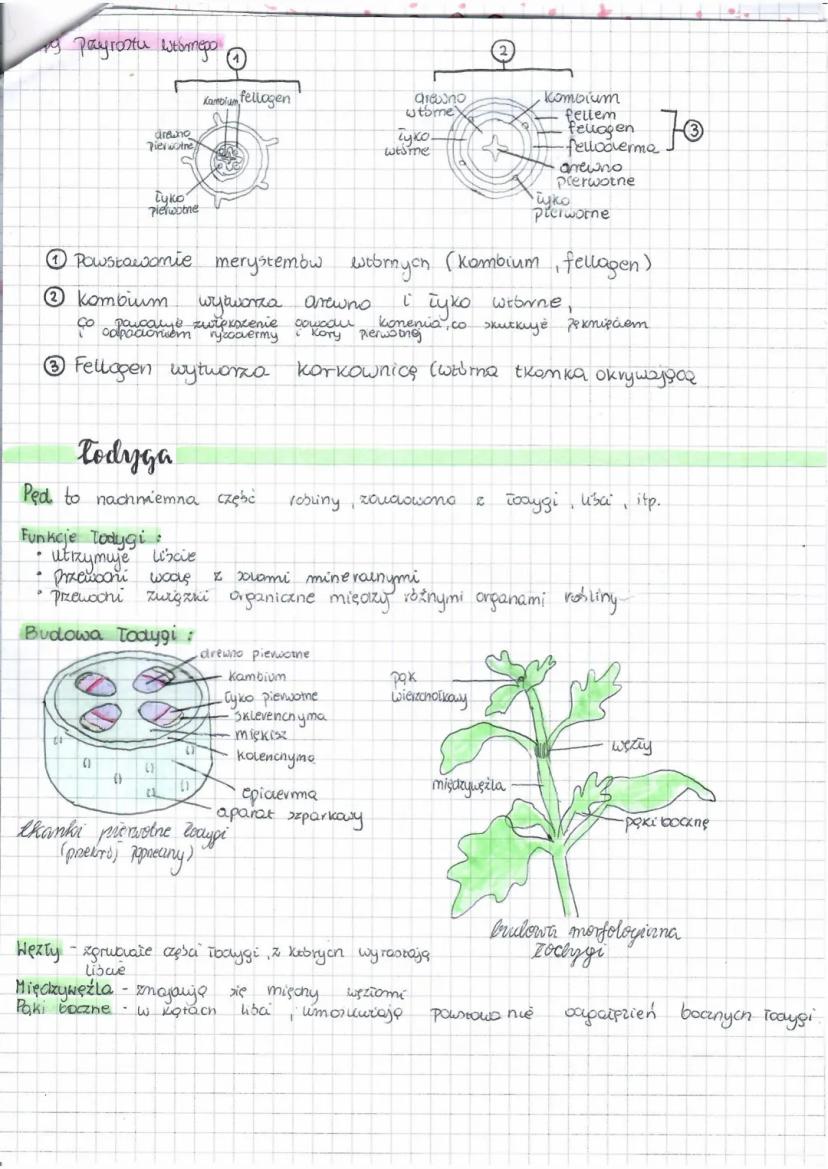 przyrostu wtórnego
①
②
kambium
fellogen
drewno pierwotne
łyko pierwotne
drewno wtórne
łyko wtórne
kambium
fellem
fellogen
felloderma
③
drewno pierwotne
łyko pierwotne
① Powstawanie merystemów wtórnych (kambium, fellogen)
② Kambium wytwarza drewno i łyko wtórne,
co powoduje zwiększenie obwodu korzenia, co skutkuje pęknięciem
i odpadaniem ryzodermy i kory pierwotnej
③ Fellogen wytwarza korkownicę (wtórna tkanka okrywająca
Łodyga
Pęd to nadziemna część rośliny, zbudowana z łodygi, liści, itp.
Funkcje łodygi:
• utrzymuje liście
• przewodzi wodę z solami mineralnymi
• przewodzi związki organiczne między różnymi organami rośliny
Budowa łodygi:
drewno pierwotne
kambium
łyko pierwotne
sklerenchyma
miękisz
kolenchyma
epiderma
aparat szparkowy
tkanki pierwotne łodygi
(przekrój poprzeczny)
pąk
wierzchołkowy
węzły
międzywęźla
pąki boczne
budowa morfologiczna
łodygi
Węzły - zgrubiałe części łodygi, z których wyrastają
liście
Międzywęźla - znajdują się między węzłami
Pąki boczne - w kątach liści, umożliwiają powstawanie odgałęzień bocznych łodygi.